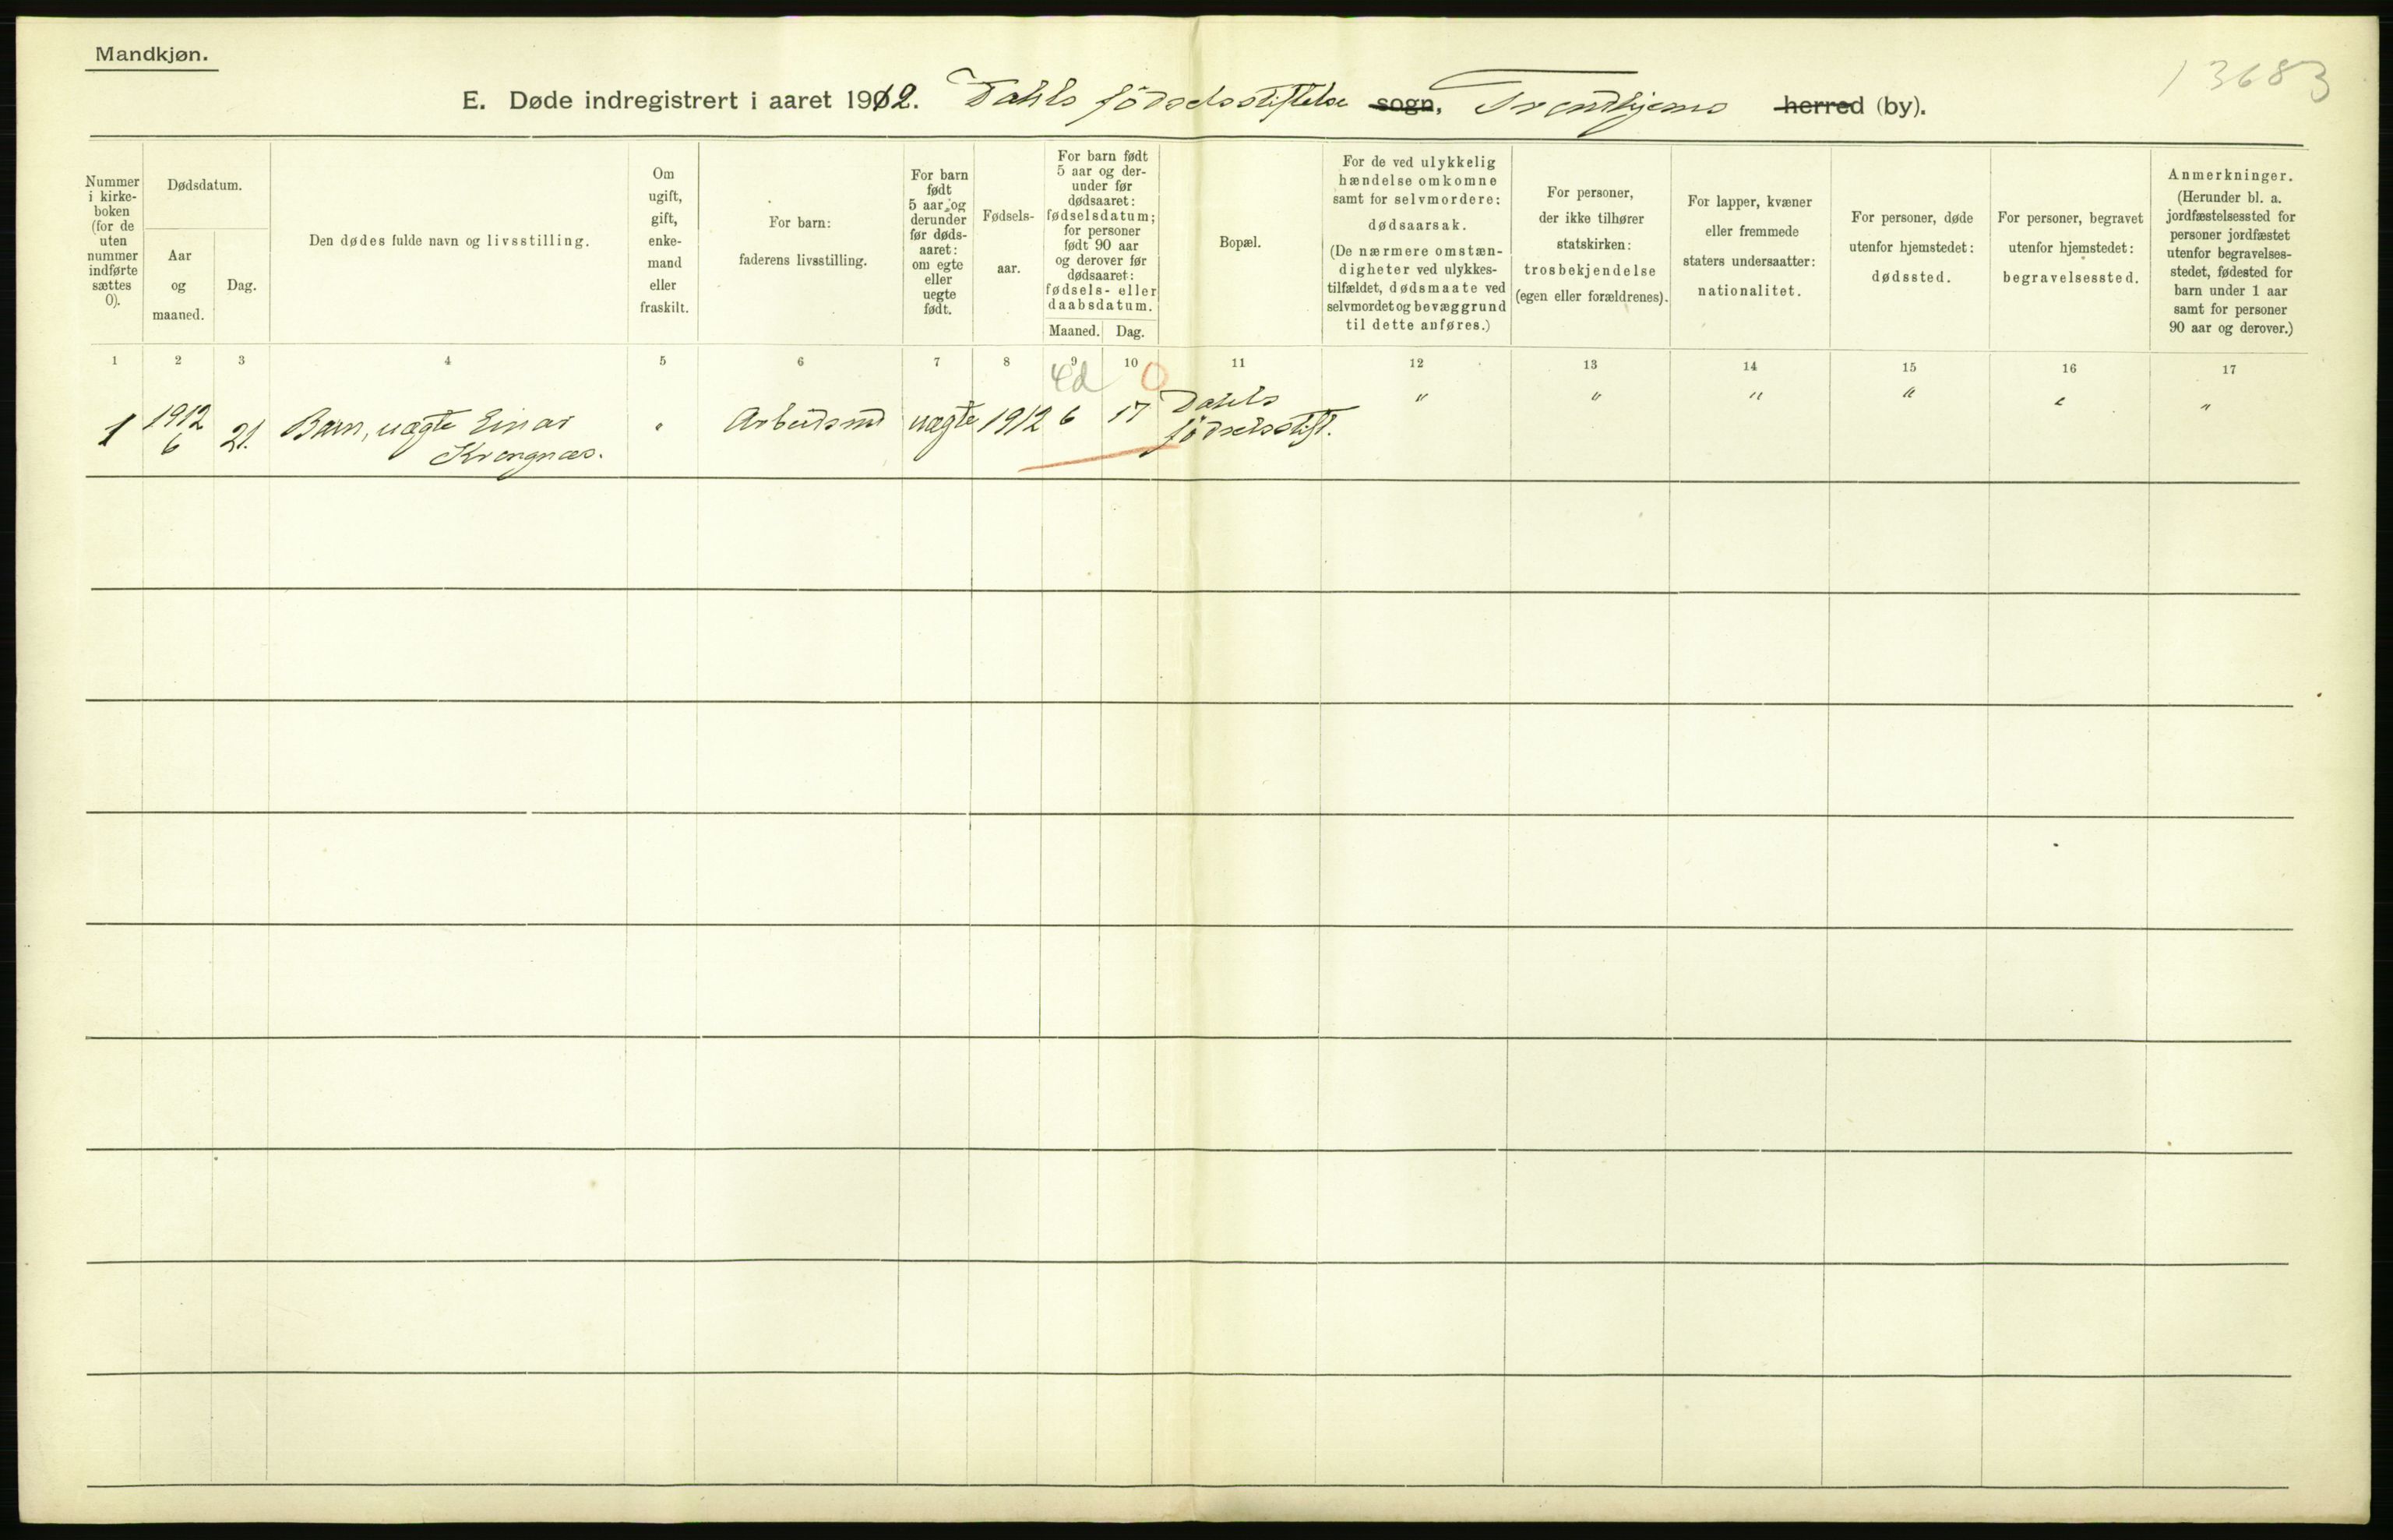 Mandkjøn.
13683
E. Døde indregistrert i aaret 1912. Dahls födselsstiftelse sogn, Trondhjems herred (by).
Nummer
i kirke-
boken
(for de
uten
nummer
indførte
sættes
0).
Dødsdatum.
Aar
og
maaned.
Dag.
Den dødes fulde navn og livsstilling.
Om
ugift,
gift,
enke-
mand
eller
fraskilt.
For barn:
faderens livsstilling.
For barn
født
5 aar og
derunder
før døds-
aaret:
om egte
eller
uegte
født.
Fødsels-
aar.
For barn født
5 aar og der-
under før
dødsaaret:
fødselsdatum;
for personer
født 90 aar
og derover før
dødsaaret:
fødsels- eller
daabsdatum.
Maaned. Dag.
Bopæl.
For de ved ulykkelig
hændelse omkomne
samt for selvmordere:
dødsaarsak.
(De nærmere omstæn-
digheter ved ulykkes-
tilfældet, dødsmaate ved
selvmordet og bevæggrund
til dette anføres.)
For personer,
der ikke tilhører
statskirken:
trosbekjendelse
(egen eller forældrenes).
For lapper, kvæner
eller fremmede
staters undersaatter:
nationalitet.
For personer, døde
utenfor hjemstedet:
dødssted.
For personer, begravet
utenfor hjemstedet:
begravelsessted.
Anmerkninger.
(Herunder bl. a.
jordfæstelsessted for
personer jordfæstet
utenfor begravelses-
stedet, fødested for
barn under 1 aar
samt for personer
90 aar og derover.)
1 2 3 4 5 6 7 8 9 10 11 12 13 14 15 16 17
4d 0
1 1912 6 21. Barn, uægte Einar " Arbeidsmd uægte 1912 6 17 Dahls " " " " " "
födselsstift.